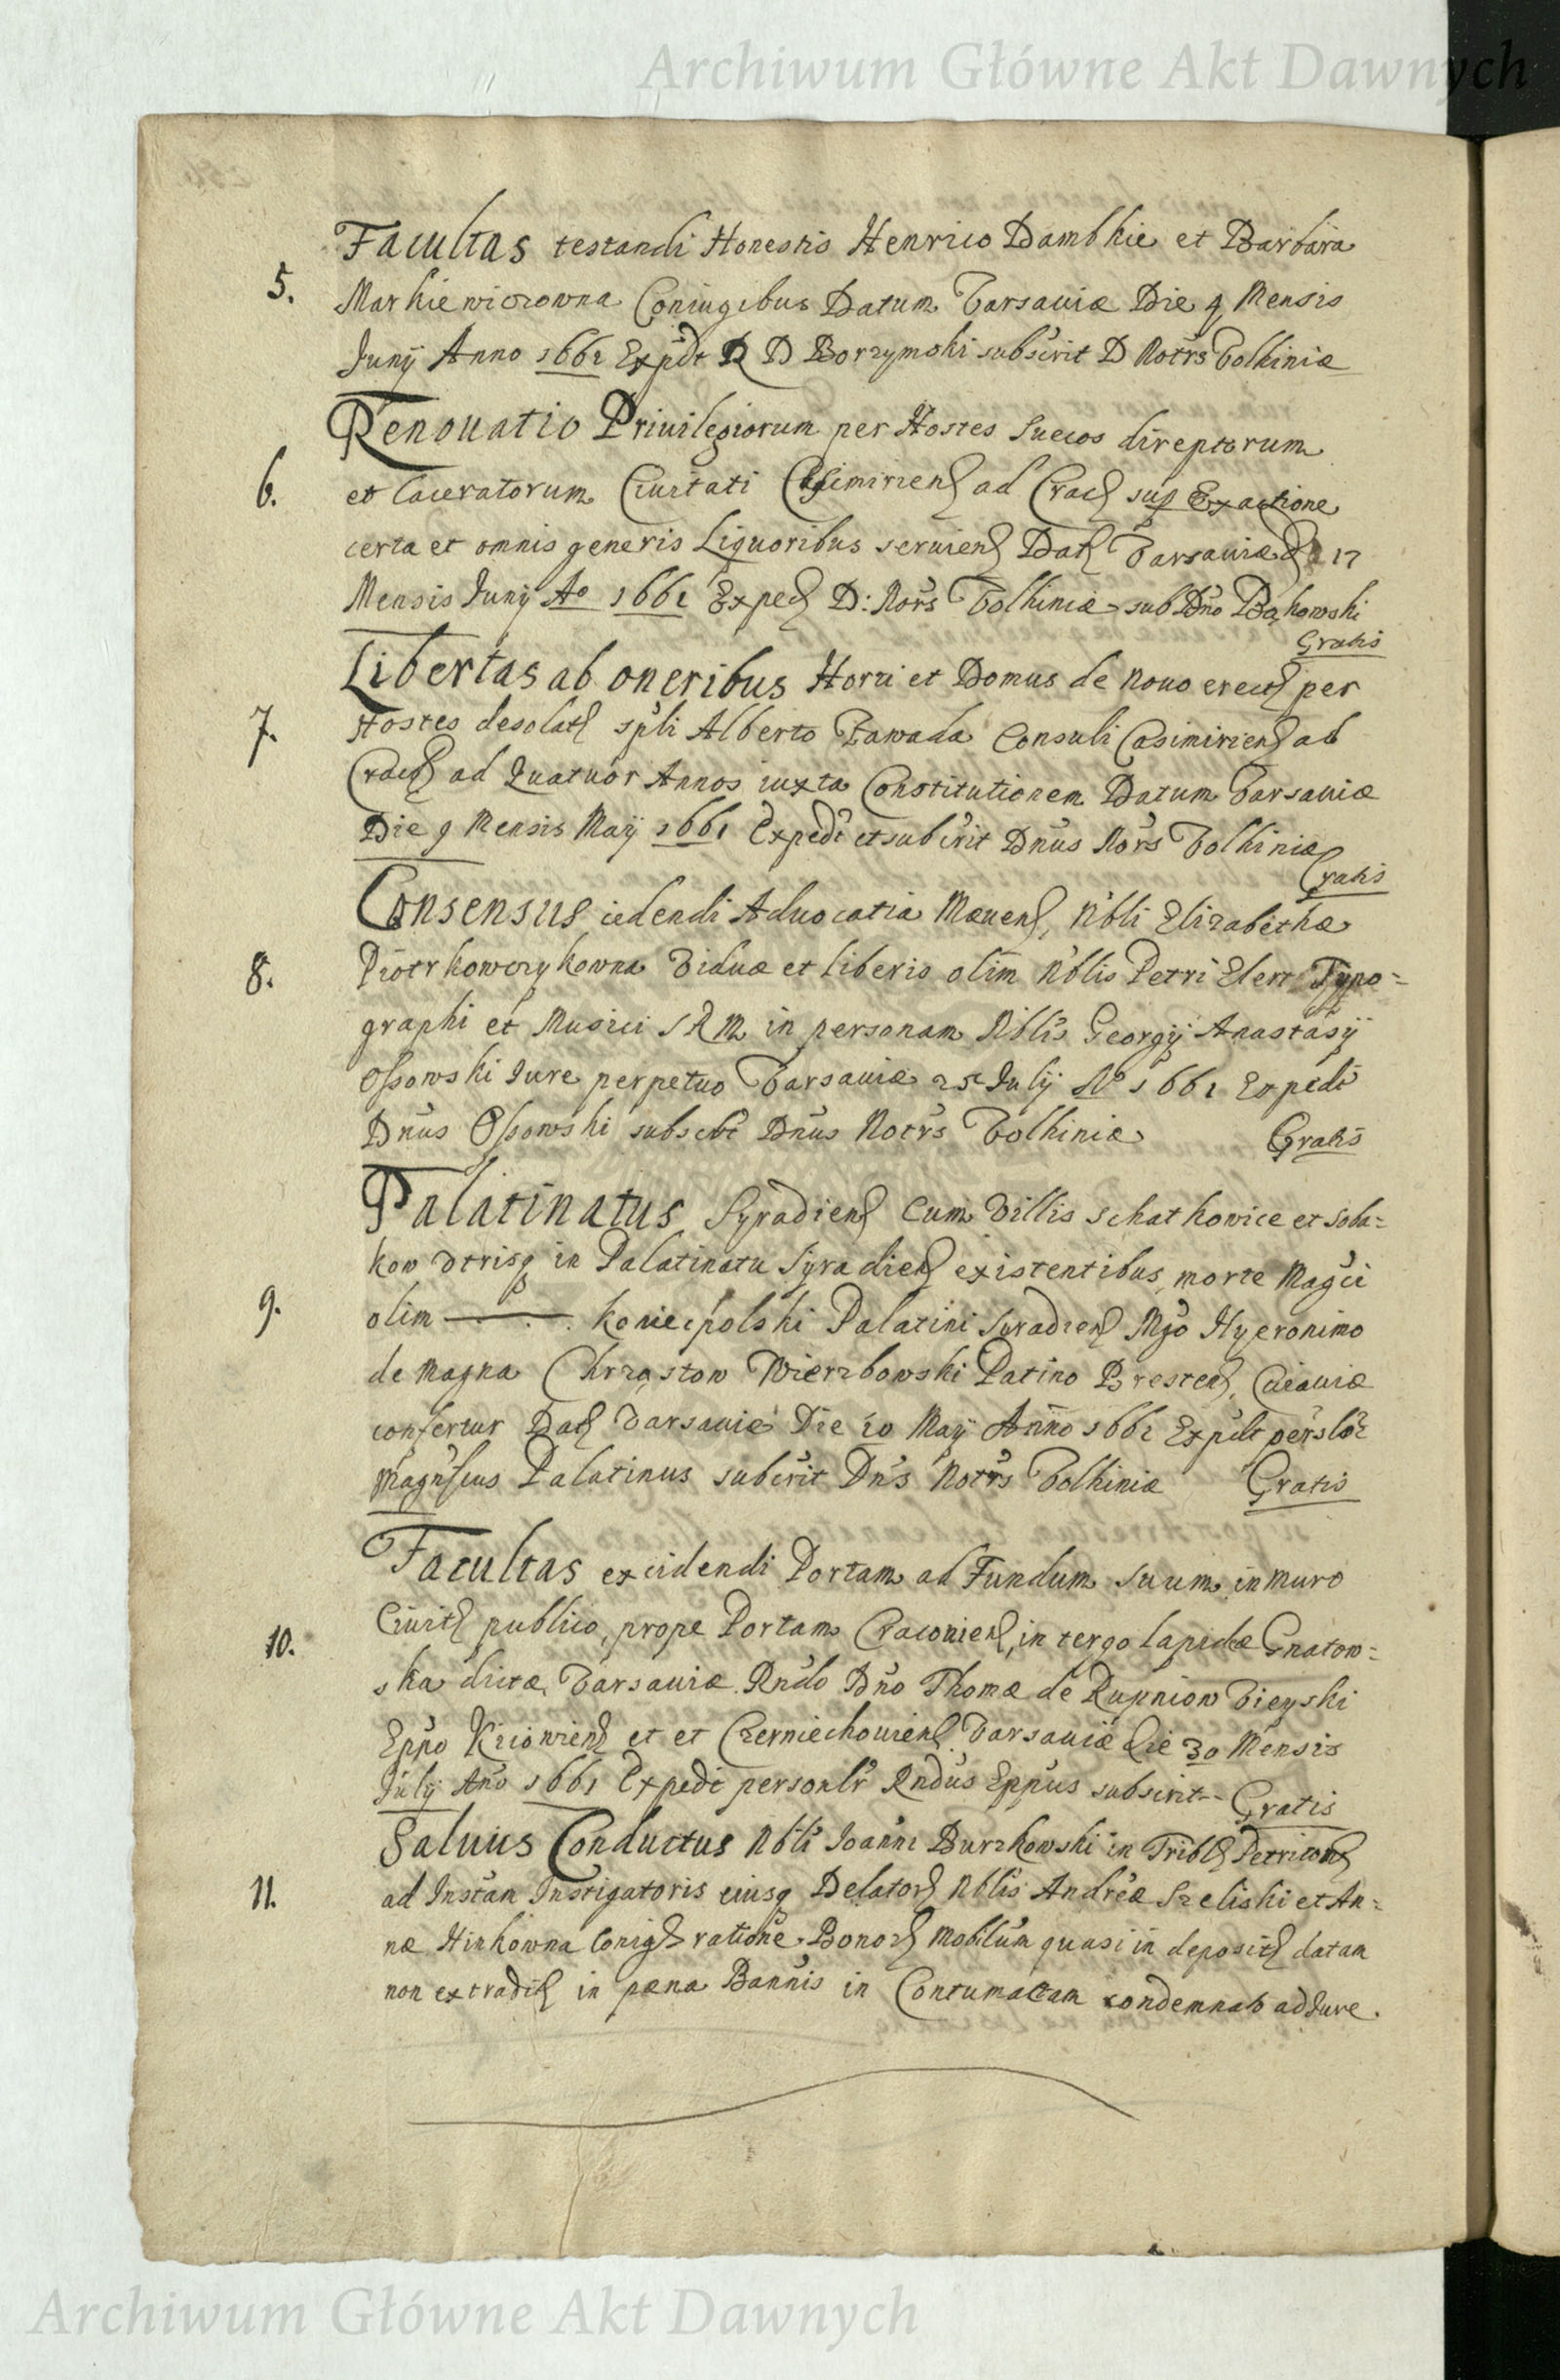 Archiwum Główne Akt Dawnych
Facultas testandi Honestis Henrico Dambkie et Barbara
5. Markiewiczowna Coniugibus Datum Varsaviæ Die 4 Mensis
Junij Anno 1661 Expdt D D Borzymski subscrit D Notrs Volhiniæ
Renouatio Priuilegiorum per Hostes Suecos direptorum
6. et laceratorum Ciuitati Casimirien ad Crac sup Exactione
certa et omnis generis Liquoribus seruien Dat Varsauiæ d 17
Mensis Junij Ao 1661 Exped D: Nors Volhiniæ sub Dno Bąkowski
Gratis
Libertas ab oneribus Horti et Domus de nouo erect per
7. Hostes desolat spli Alberto Zawada Consuli Casimirien ad
Crac ad Quatuor Annos iuxta Constitutionem Datum Varsauiæ
Die 9 Mensis Maij 1661 Expedt et subscrit Dnus Nors Volhiniæ
Gratis
Consensus cedendi Aduocatia Mæuen, Nbli Elizabethæ
8. Piotrkowczykowna Viduæ et liberis olim Nblis Petri Elert Typo=
graphi et Musici S R M in personam Nblis Georgij Anastasij
Ossowski Jure perpetuo Varsauiæ 25 Julij Ao 1661 Expedt
Dnus Ossowski subscbt Dnus Notrs Volhiniæ Gratis
Palatinatus Syradien Cum Villis Schatkowice et Soba=
kow Vtrisq in Palatinatu Syradien existentibus, morte Magci
9. olim ——— Koniecpolski Palatini Syradien Mgo Hyeronimo
de Magna Chrząstow Wierzbowski Patino Bresten, Cuiauiæ
confertur Dat Varsauiæ Die 20 Maij Anno 1661 Expdt perslr
Magnficus Palatinus subscrit Dns Notrs Volhiniæ Gratis
Facultas excidendi Portam ad Fundum suum in muro
10. Ciuit publico, prope Portam Cracouien, in tergo lapideæ Gnatow=
ska dictæ, Varsauiæ Rndo Dno Thomæ de Rupniow Vieyski
Eppo Kiiowien et et Czerniechouien Varsauiæ Die 30 Mensis
Julij Ano 1661 Expedt personlr Rndus Eppus subscrit-- Gratis
Saluus Conductus Nbli Joanni Burzkowski in Tribl Petricon
11. ad Instan Instigatoris eiusq Delator Nblis Andreæ Szeliski et An=
næ Hinkowna Coniug ratione Bonor Mobilium quasi in deposit datam
non extradit in pæna Bannis in Contumaciam condemnato ad Jure.
Archiwum Główne Akt Dawnych